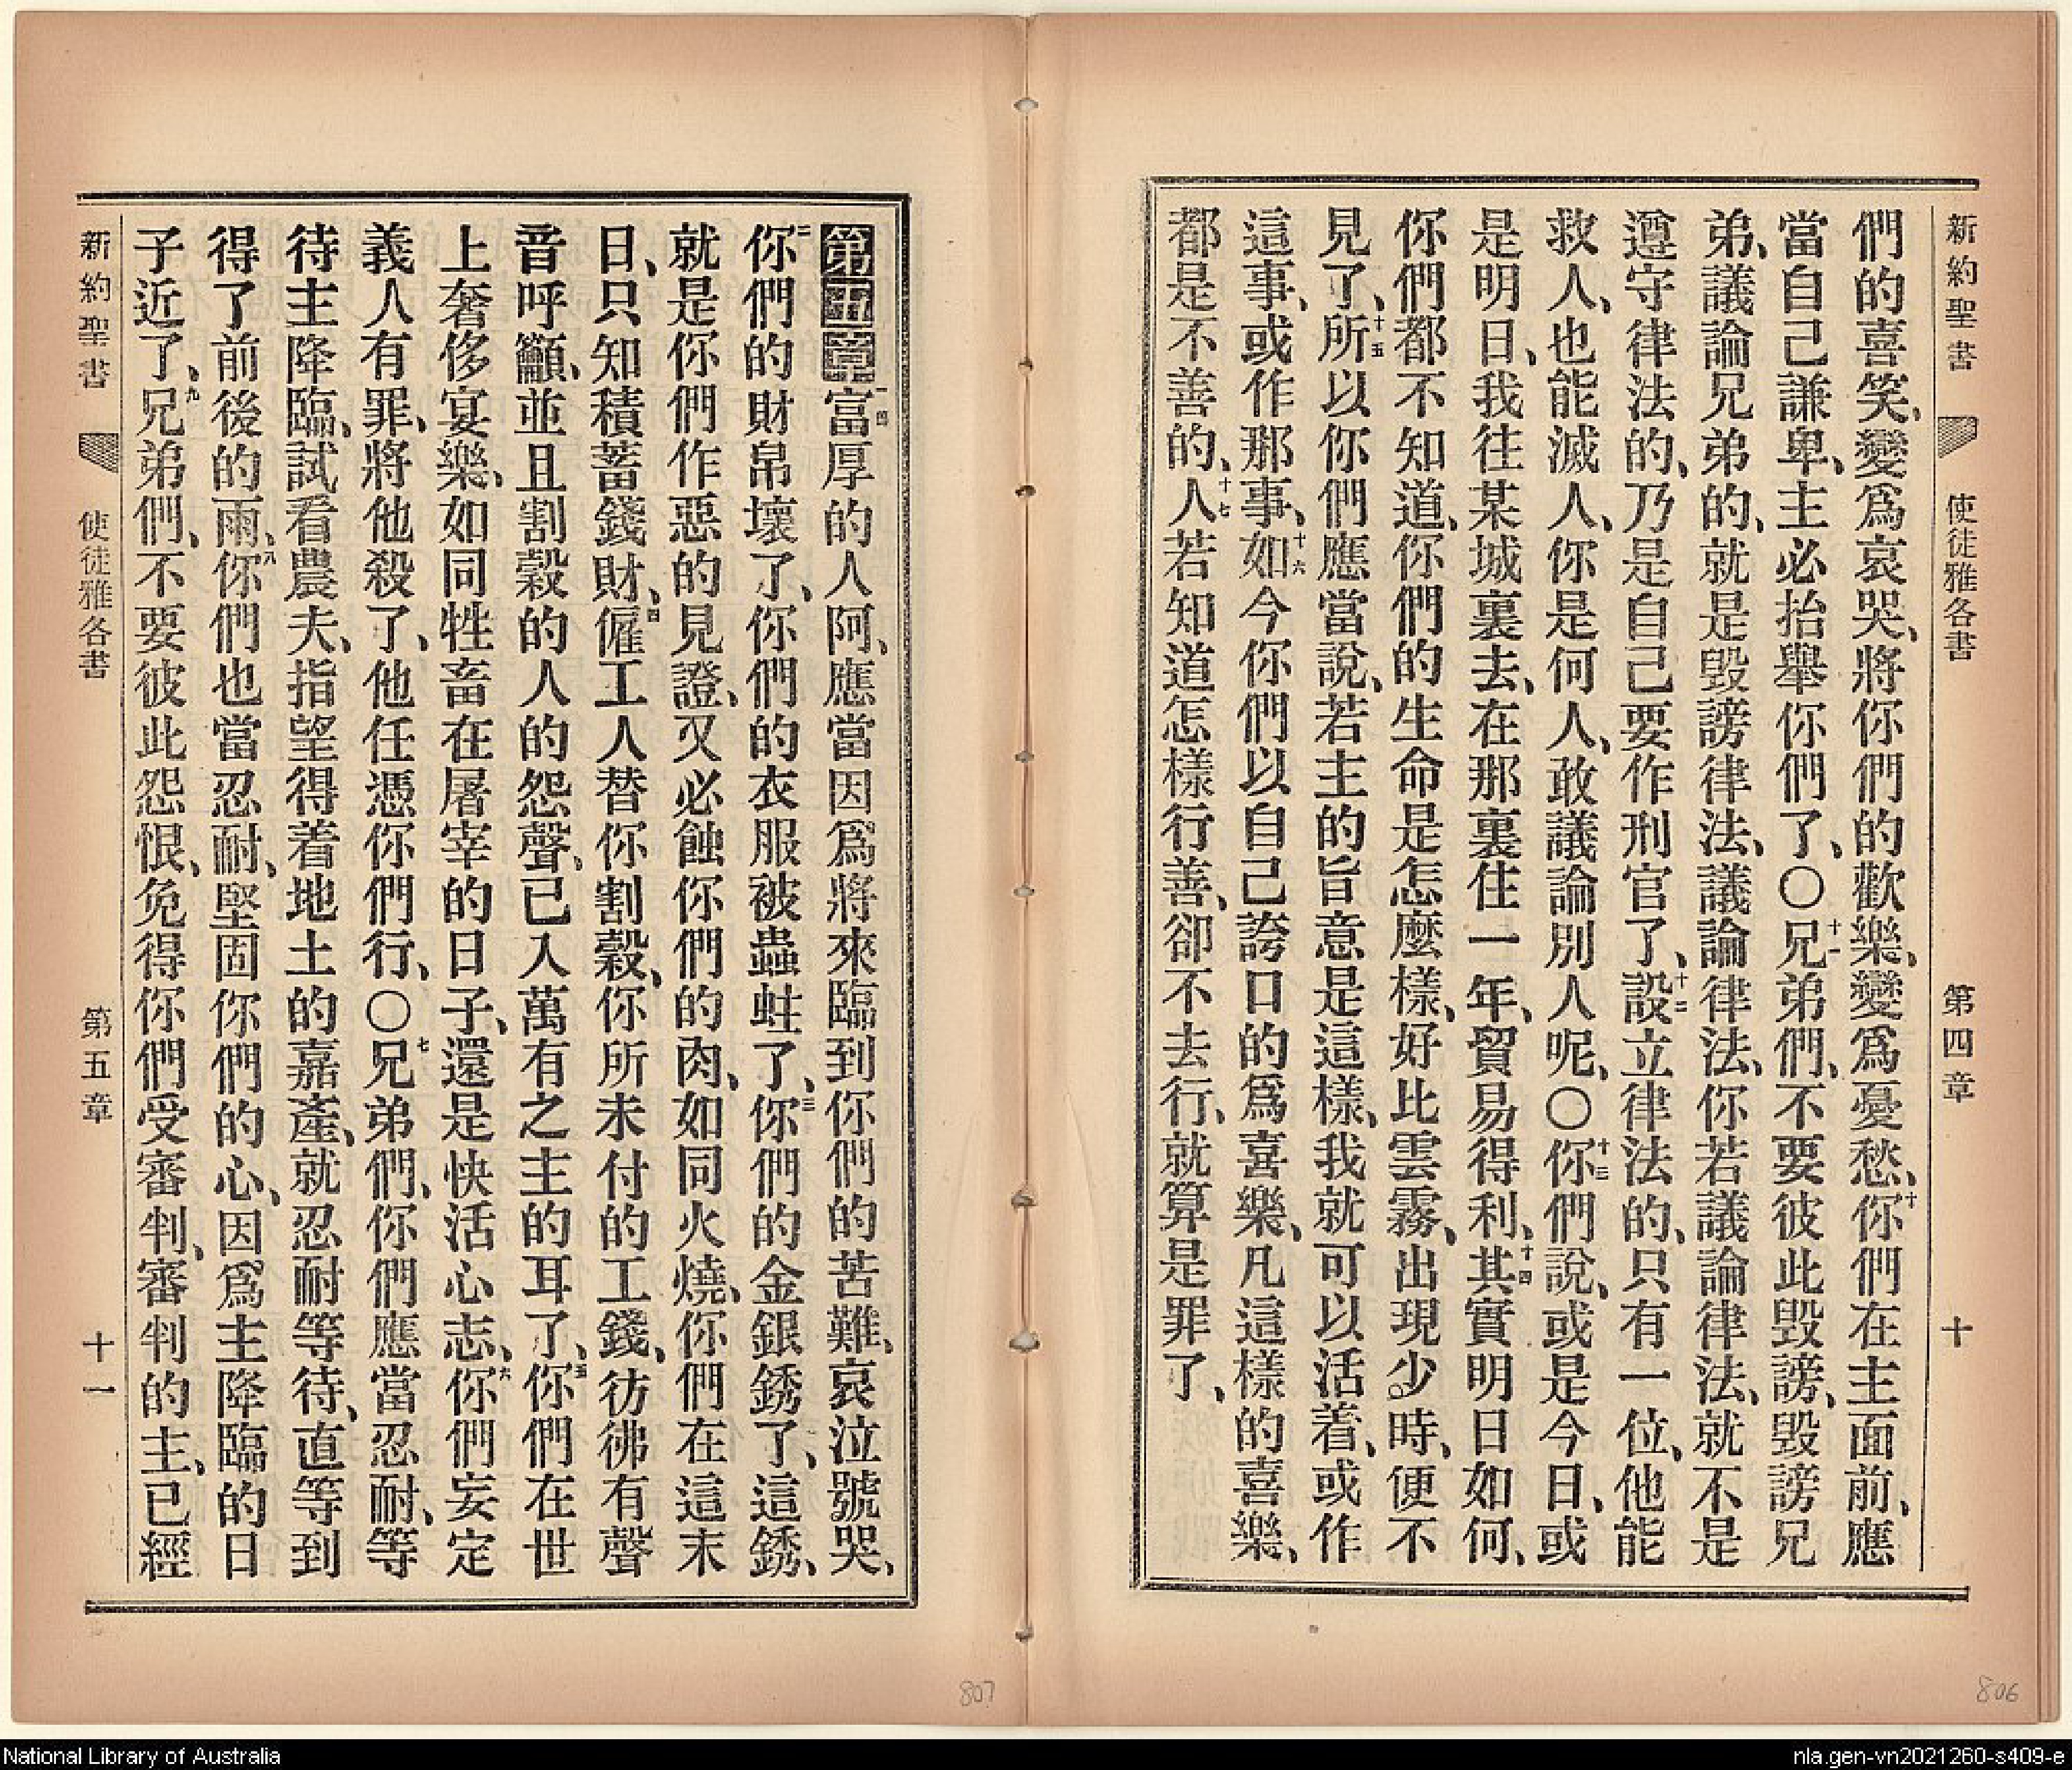 新約聖書 使徒雅各書 第四章 十
們的喜笑、變爲哀哭、將你們的歡樂、變爲憂愁、十你們在主面前、應
當自己謙卑、主必抬舉你們了、〇十一兄弟們、不要彼此毀謗、毀謗兄
弟、議論兄弟的、就是毀謗律法、議論律法、你若議論律法、就不是
遵守律法的、乃是自己要作刑官了、十二設立律法的、只有一位、他能
救人、也能滅人、你是何人、敢議論別人呢、〇十三你們說、或是今日、或
是明日、我往某城裏去、在那裏住一年、貿易得利、十四其實明日如何、
你們都不知道、你們的生命是怎麼樣、好比雲霧、出現少時、便不
見了、十五所以你們應當說、若主的旨意是這樣、我就可以活着、或作
這事、或作那事、十六如今你們以自己誇口的爲喜樂、凡這樣的喜樂、
都是不善的、十七人若知道怎樣行善、卻不去行、就算是罪了、
第五章一節富厚的人阿、應當因爲將來臨到你們的苦難、哀泣號哭、
二你們的財帛壞了、你們的衣服被蟲蛀了、三你們的金銀銹了、這銹、
就是你們作惡的見證、又必蝕你們的肉、如同火燒、你們在這末
日、只知積蓄錢財、四僱工人替你割穀、你所未付的工錢、彷彿有聲
音呼籲、並且割穀的人的怨聲、已入萬有之主的耳了、五你們在世
上奢侈宴樂、如同牲畜在屠宰的日子、還是快活心志、六你們妄定
義人有罪、將他殺了、他任憑你們行、〇七兄弟們、你們應當忍耐、等
待主降臨、試看農夫、指望得着地土的嘉產、就忍耐等待、直等到
得了前後的雨、八你們也當忍耐、堅固你們的心、因爲主降臨的日
子近了、九兄弟們、不要彼此怨恨、免得你們受審判、審判的主、已經
新約聖書 使徒雅各書 第五章 十一
807
806
National Library of Australia
nla.gen-vn2021260-s409-e